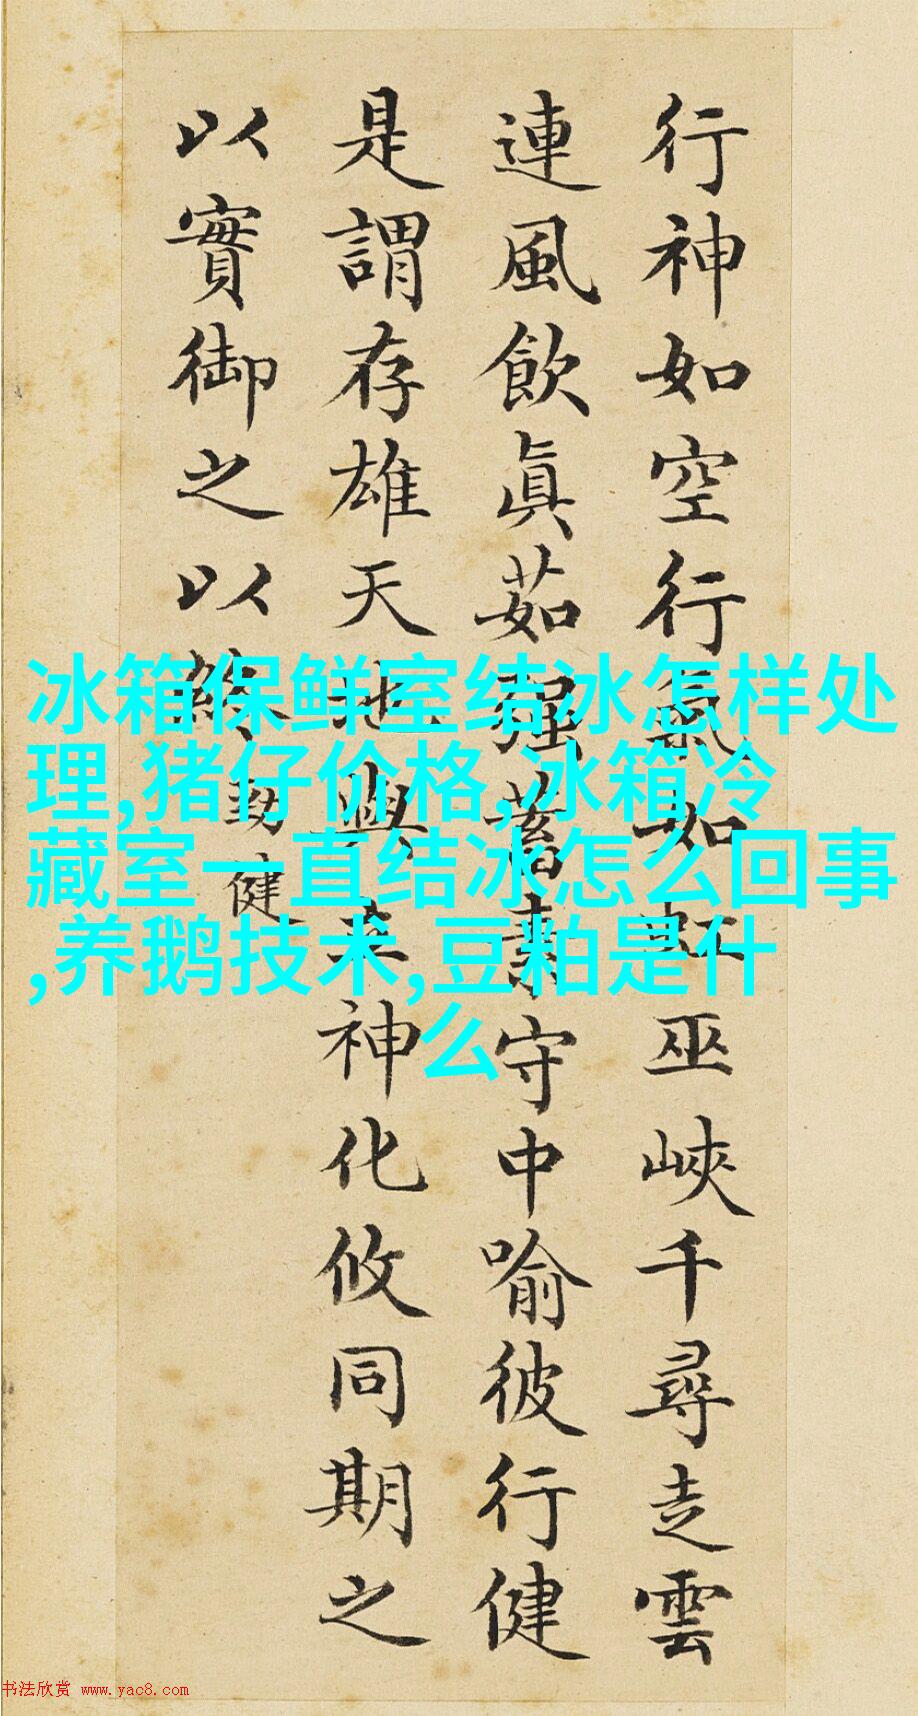 行神如空行氣如虹巫峽千尋走雲
連風飲眞茹强蓄素守中喻彼行健
是謂存雄天地與立神化攸同期之
以實御之以終
勁健
冰箱保鲜室结冰怎样处
理,猪仔价格,冰箱冷
藏室一直结冰怎么回事
,养鹅技术,豆粕是什
么
书法欣赏 www.yac8.com